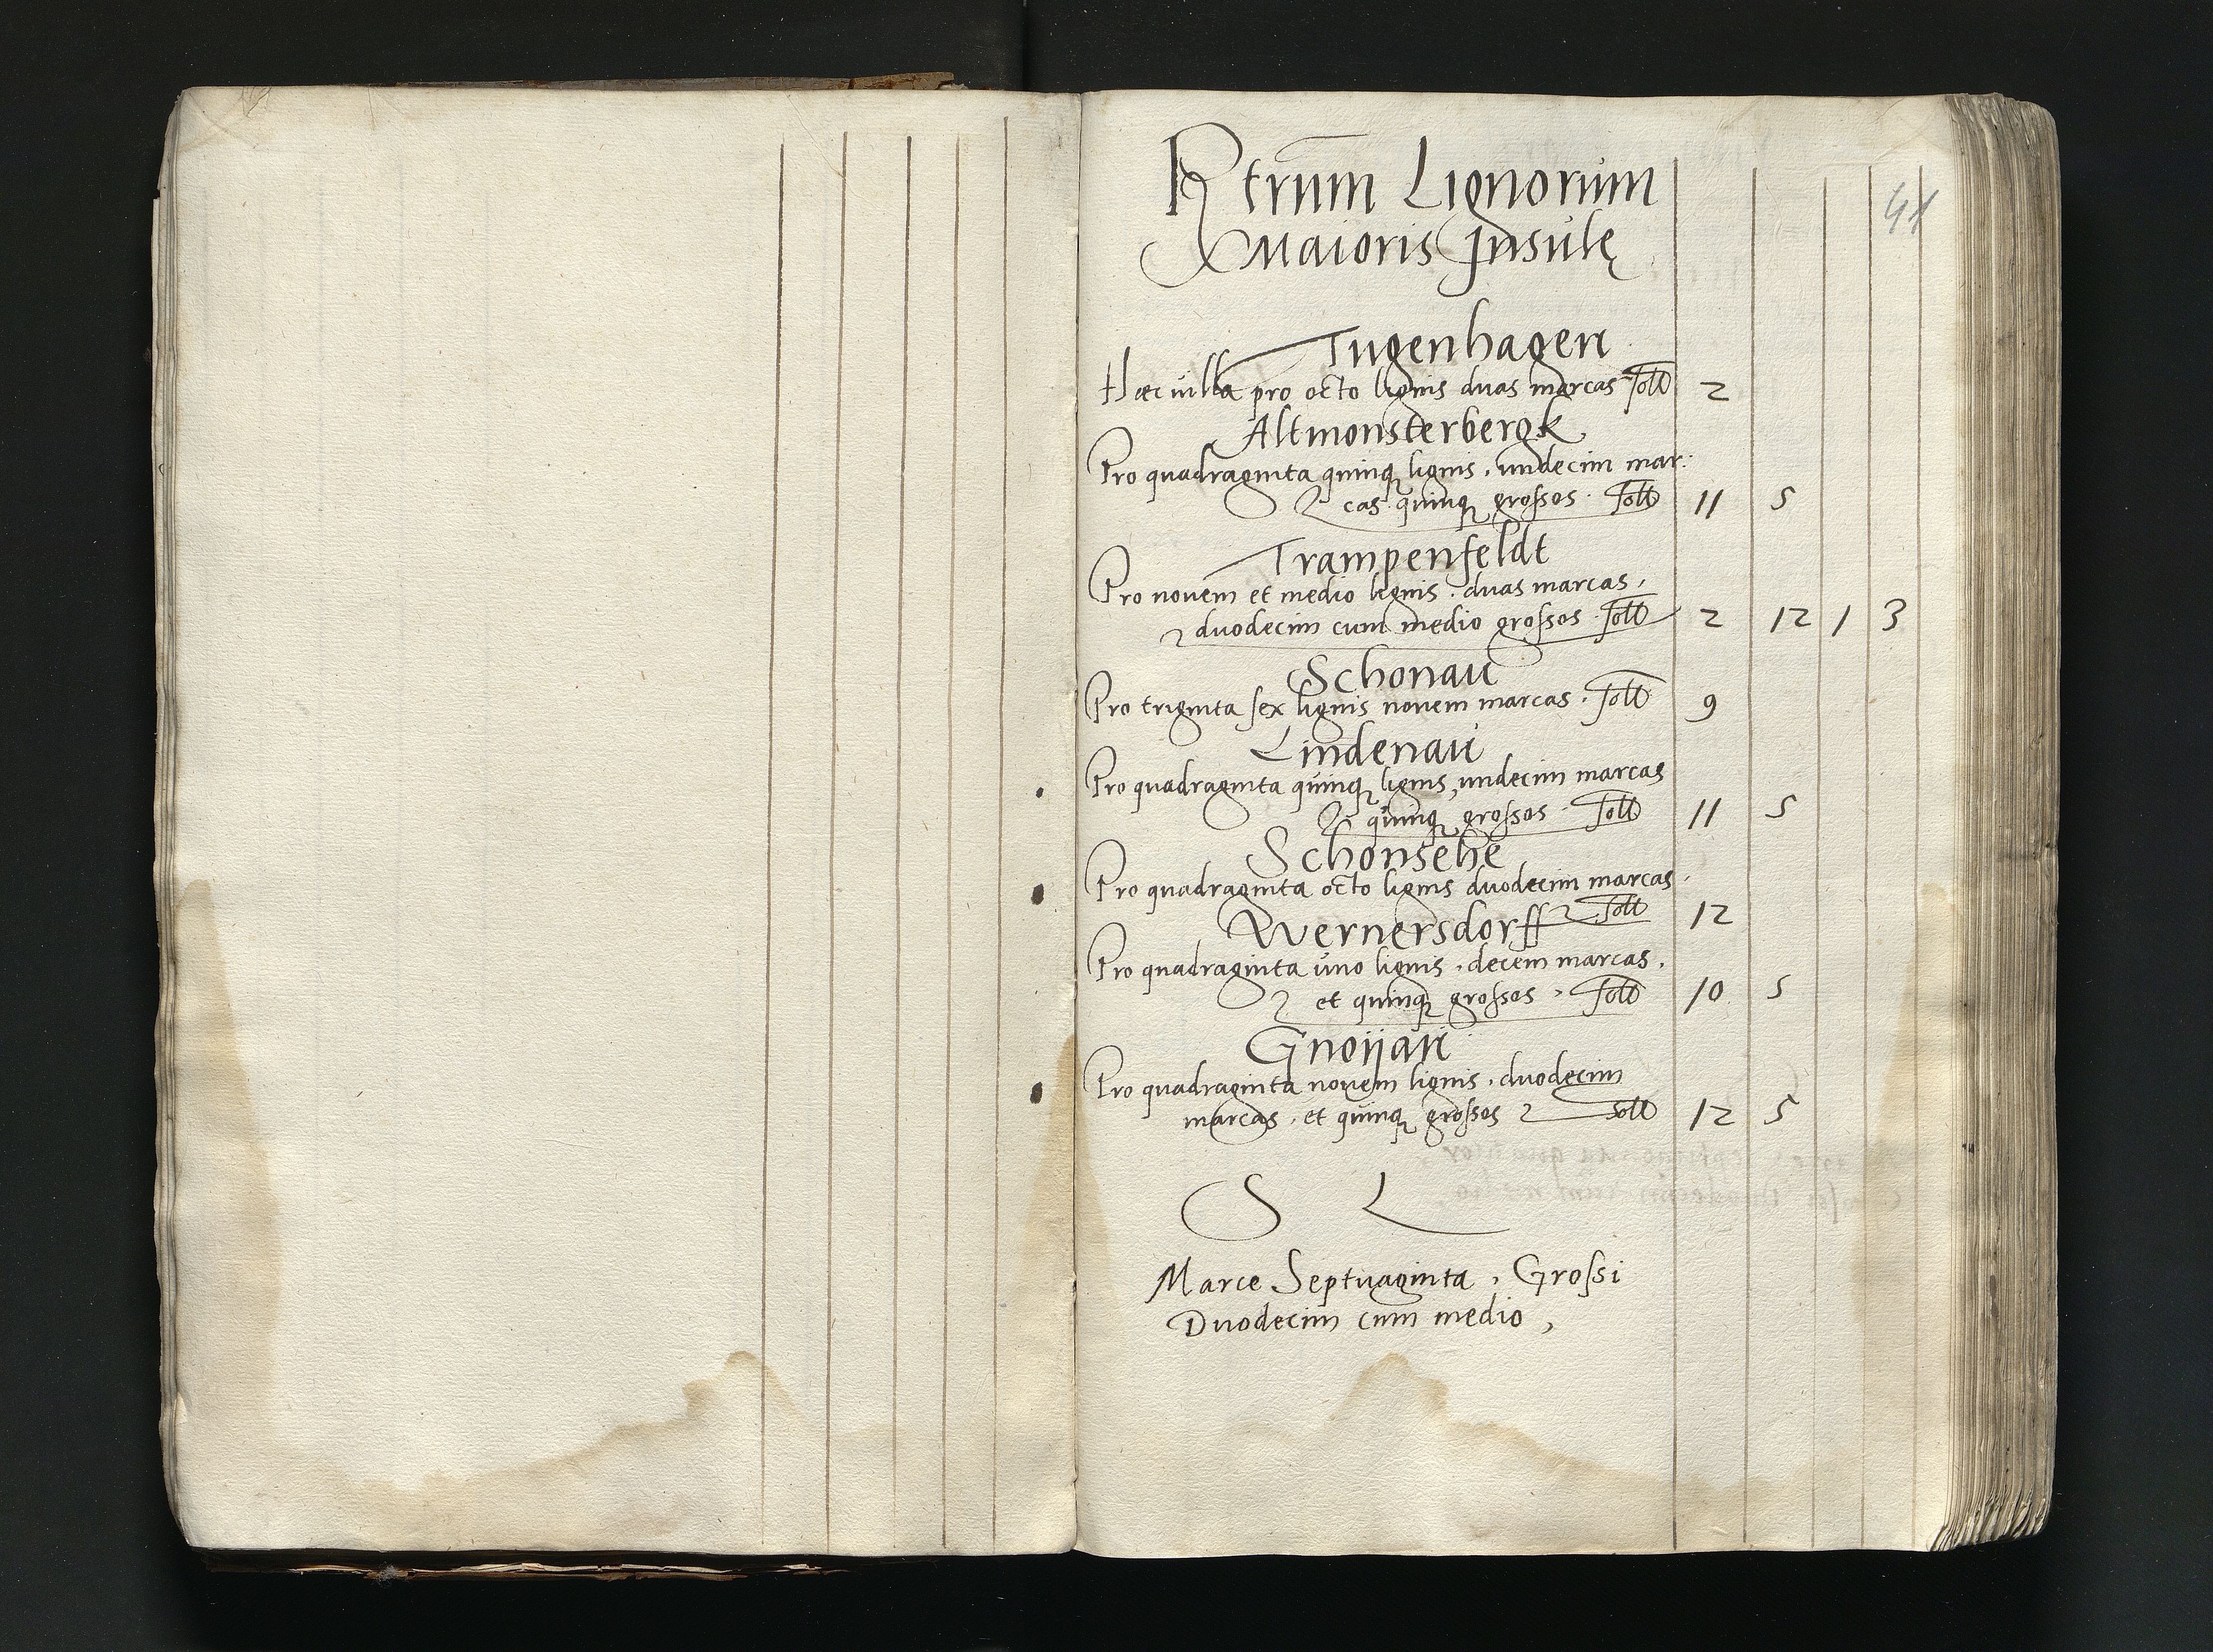 Rtrum Lignorum
Maioris Jnsulę
Tugenhagen
Haec villa pro octo lignis duas marcas soll 2
Altmonsterbergk
Pro quadraginta quinq lignis, undecim mar:
cas quinq grossos. soll 11 5
Trampenfeldt
Pro novem et medio lignis. duas marcas,
duodecim cum medio grossos. soll 2 12 1 3
Schonau
Pro triginta sex lignis novem marcas. soll 9
Lindenau
Pro quadraginta quinq lignis, undecim marcas
quinq grossos. soll 11 5
Schonsehe
Pro quadraginta octo lignis duodecim marcas.
soll 12
Wernersdorff
Pro quadraginta uno lignis. decem marcas.
et quinq grossos, soll 10 5
Gnoijau
Pro quadraginta novem lignis. duodecim
marcas. et quinq grossos soll 12 5
S L
Marce Septuaginta, Grossi
Duodecim cum medio,